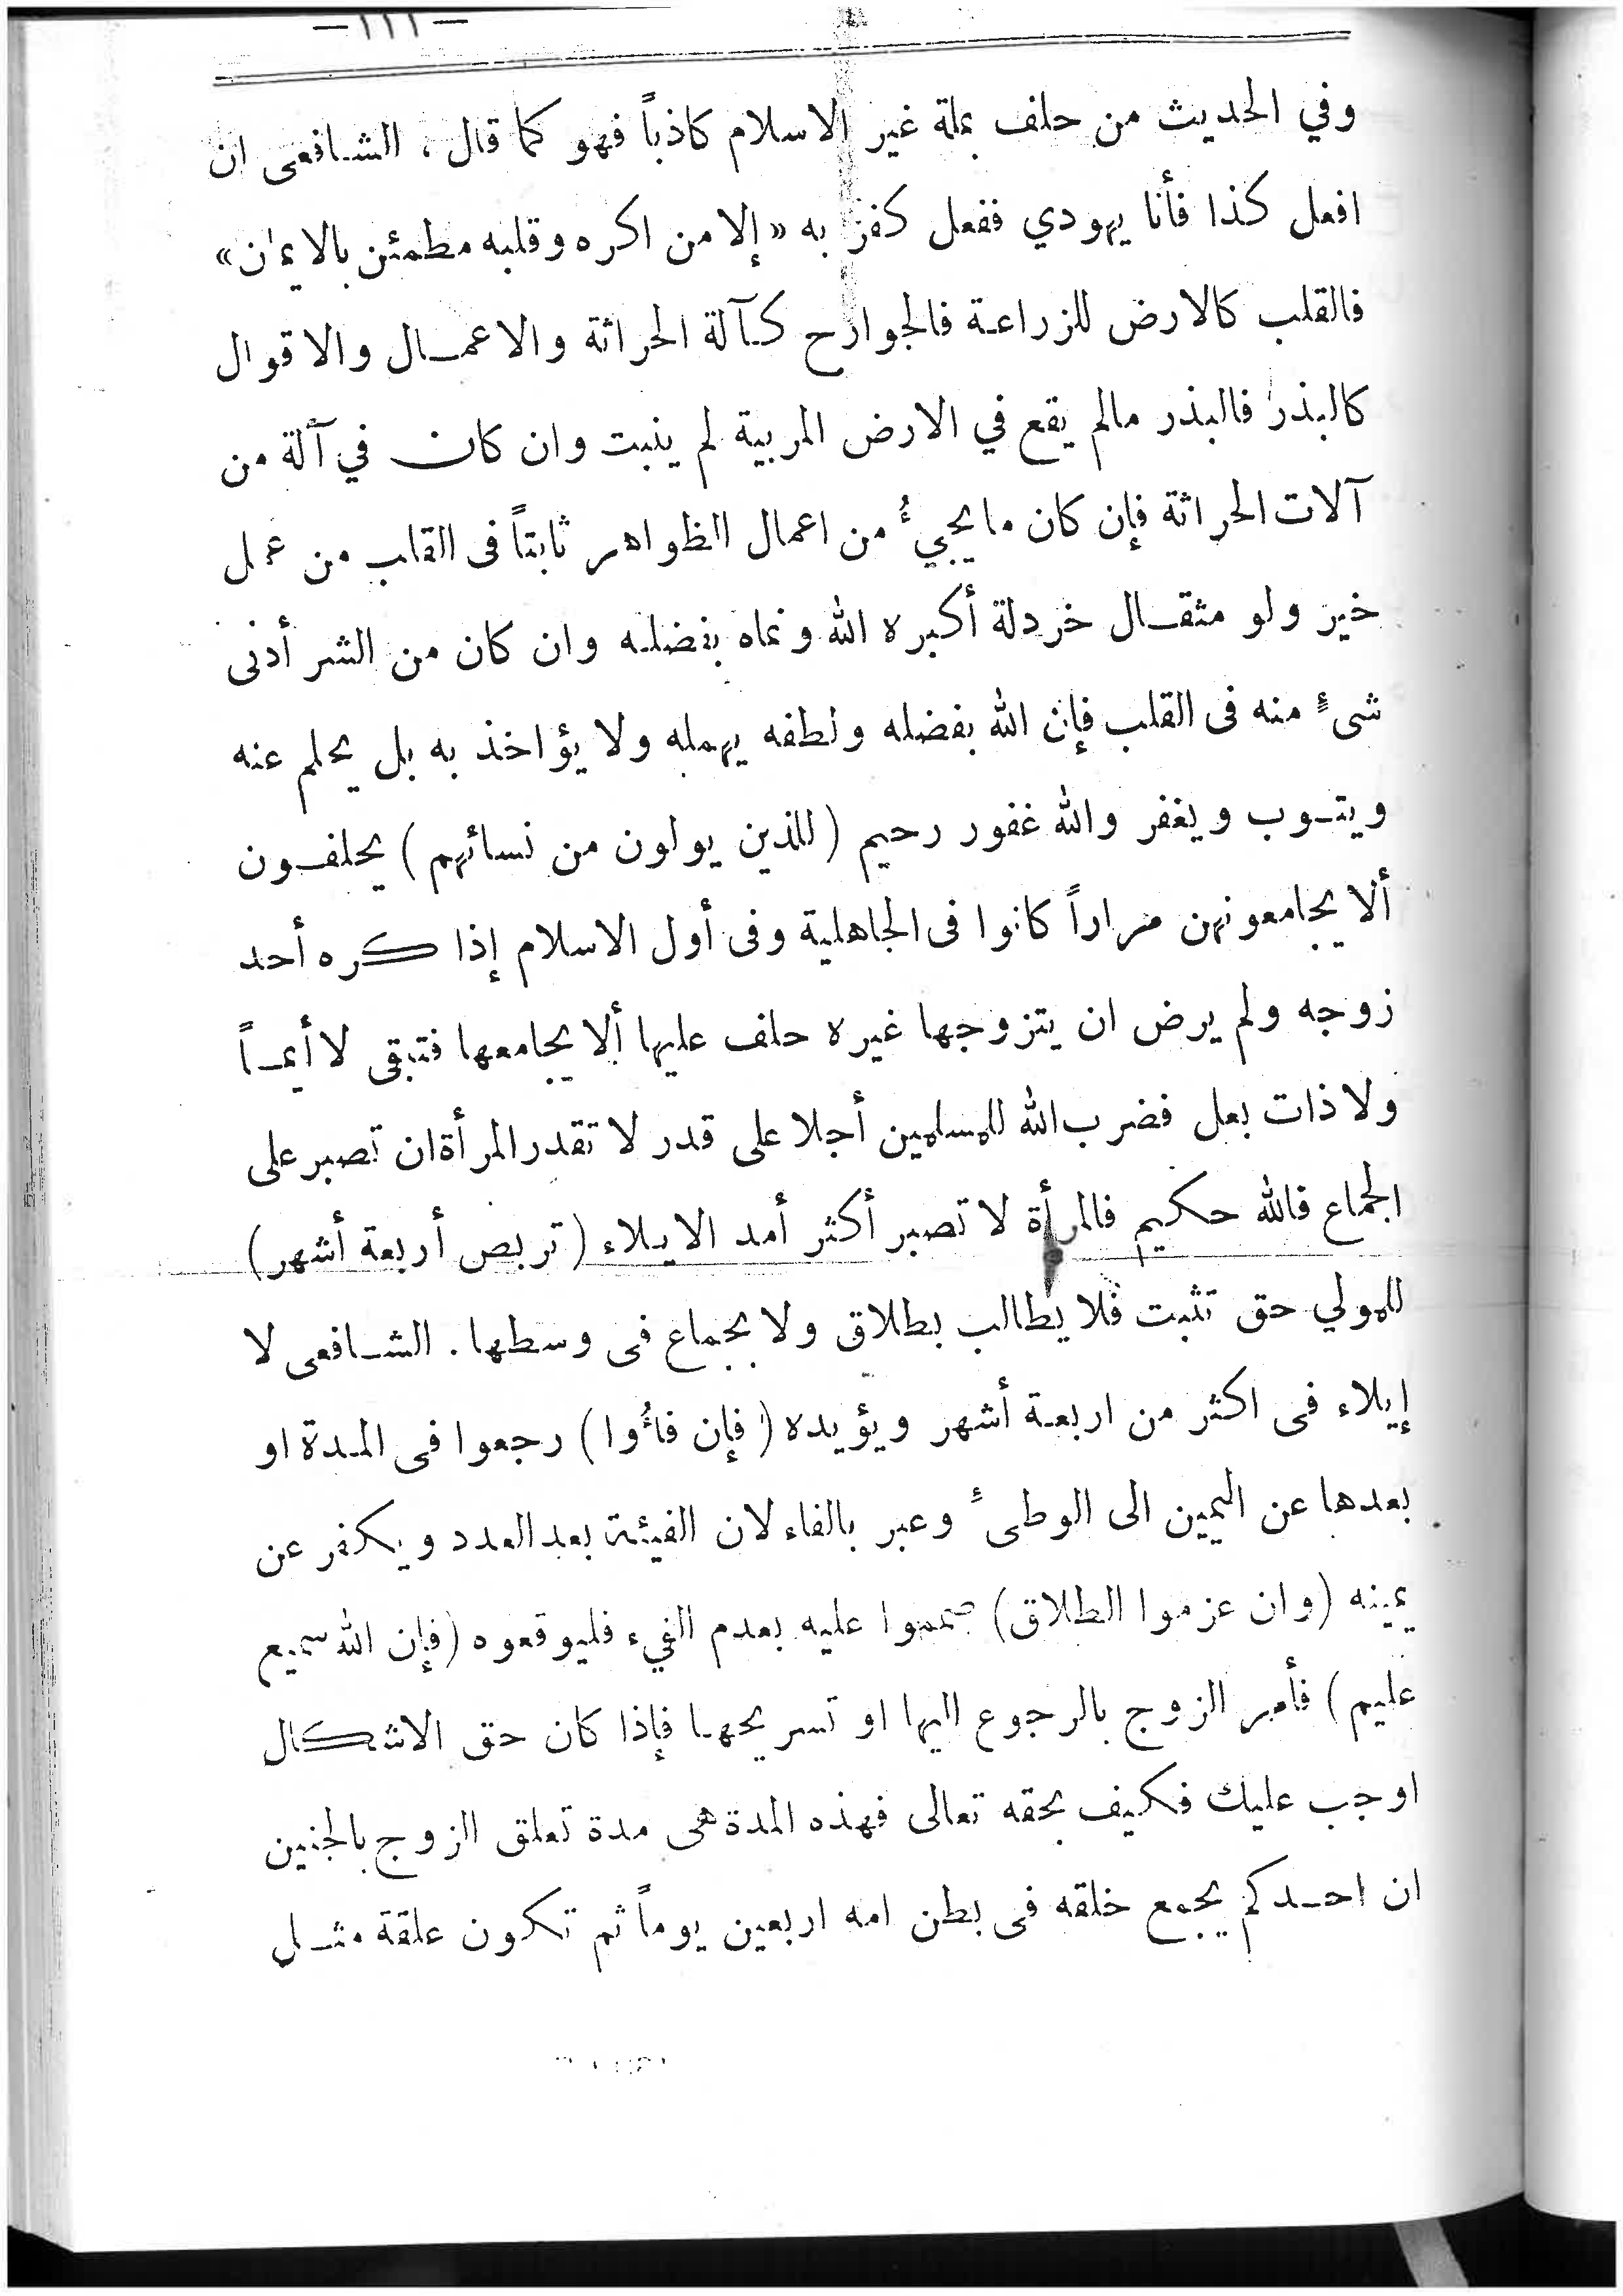 وفي الحديث من حلف بملة غير الاسلام كاذباً فهو كما قال ، الشافعى ان
افعل كذا فأنا يهودي ففعل كفر به « إلا من اكره وقلبه مطمئن بالايمٰن »
فالقلب كالارض للزراعة فالجوارح كآلة الحراثة والاعمال والاقوال
كالبذر فالبذر مالم يقع في الارض المربية لم ينبت وان كان في آلة من
آلات الحراثة فإن كان ما يجئُ من اعمال الظواهر ثابتاً فى القلب من عمل
خير ولو مثقال خردلة أكبره الله ونماه بفضله وان كان من الشر أدنى
شىءٍ منه فى القلب فإن الله بفضله ولطفه يهمله ولا يؤاخذ به بل يحلم عنه
ويتوب ويغفر والله غفور رحيم ( للذين يولون من نسائهم ) يحلفون
ألا يجامعونهن مراراً كانوا فى الجاهلية وفى أول الاسلام إذا كره أحد
زوجه ولم يرض ان يتزوجها غيره حلف عليها ألا يجامعها فتبقى لا أيماً
ولا ذات بعل فضرب الله للمسلمين أجلا على قدر لا تقدر المرأة ان تصبر على
الجماع فالله حكيم فالمرأة لا تصبر أكثر أمد الايلاء ( تربص أربعة أشهر )
للمولي حق تثبت فلا يطالب بطلاق ولا بجماع فى وسطها . الشافعى لا
إيلاء فى اكثر من اربعة أشهر ويؤيده ( فإن فاؤُا ) رجعوا فى المدة او
بعدها عن اليمين الى الوطىٔ وعبر بالفاء لان الفيئة بعد العدد ويكفر عن
يمينه ( وان عزموا الطلاق ) صمموا عليه بعدم الفيء فليوقعوه ( فإن الله سميع
عليم ) فأمر الزوج بالرجوع اليها او تسريحها فإذا كان حق الاشكال
اوجب عليك فكيف بحقه تعالى فهذه المدة هى مدة تعلق الزوج بالجنين
ان احدكم يجمع خلقه فى بطن امه اربعين يوماً ثم تكون علقة مثل